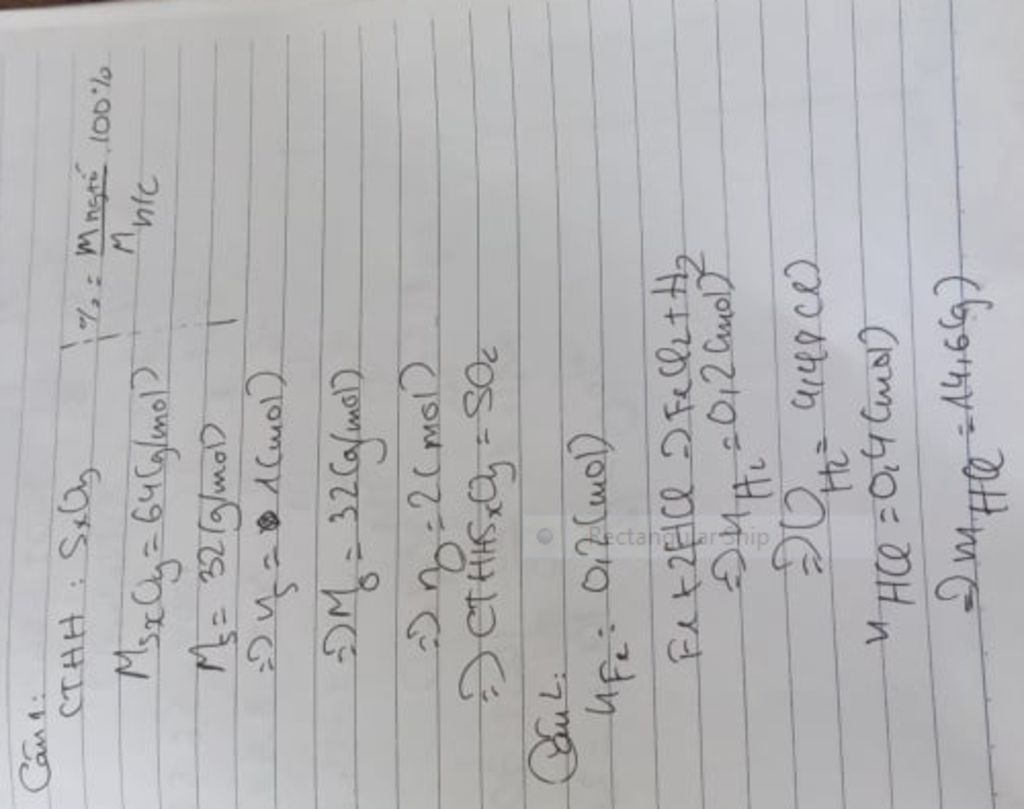 Câu 1:
CTHH : SxOy | % = m ngtố / M h/c . 100%
M SxOy = 64 (g/mol)
Ms = 32 (g/mol)
=> ns = 1 (mol)
=> Mo = 32 (g/mol)
=> nO = 2 (mol)
=> CTHH SxOy = SO2
Câu 2:
nFe = 0,2 (mol)
Fe + 2HCl => FeCl2 + H2
=> nH2 = 0,2 (mol)
=> VH2 = 4,48 (l)
nHCl = 0,4 (mol)
=> mHCl = 14,6 (g)
Rectangular Ship